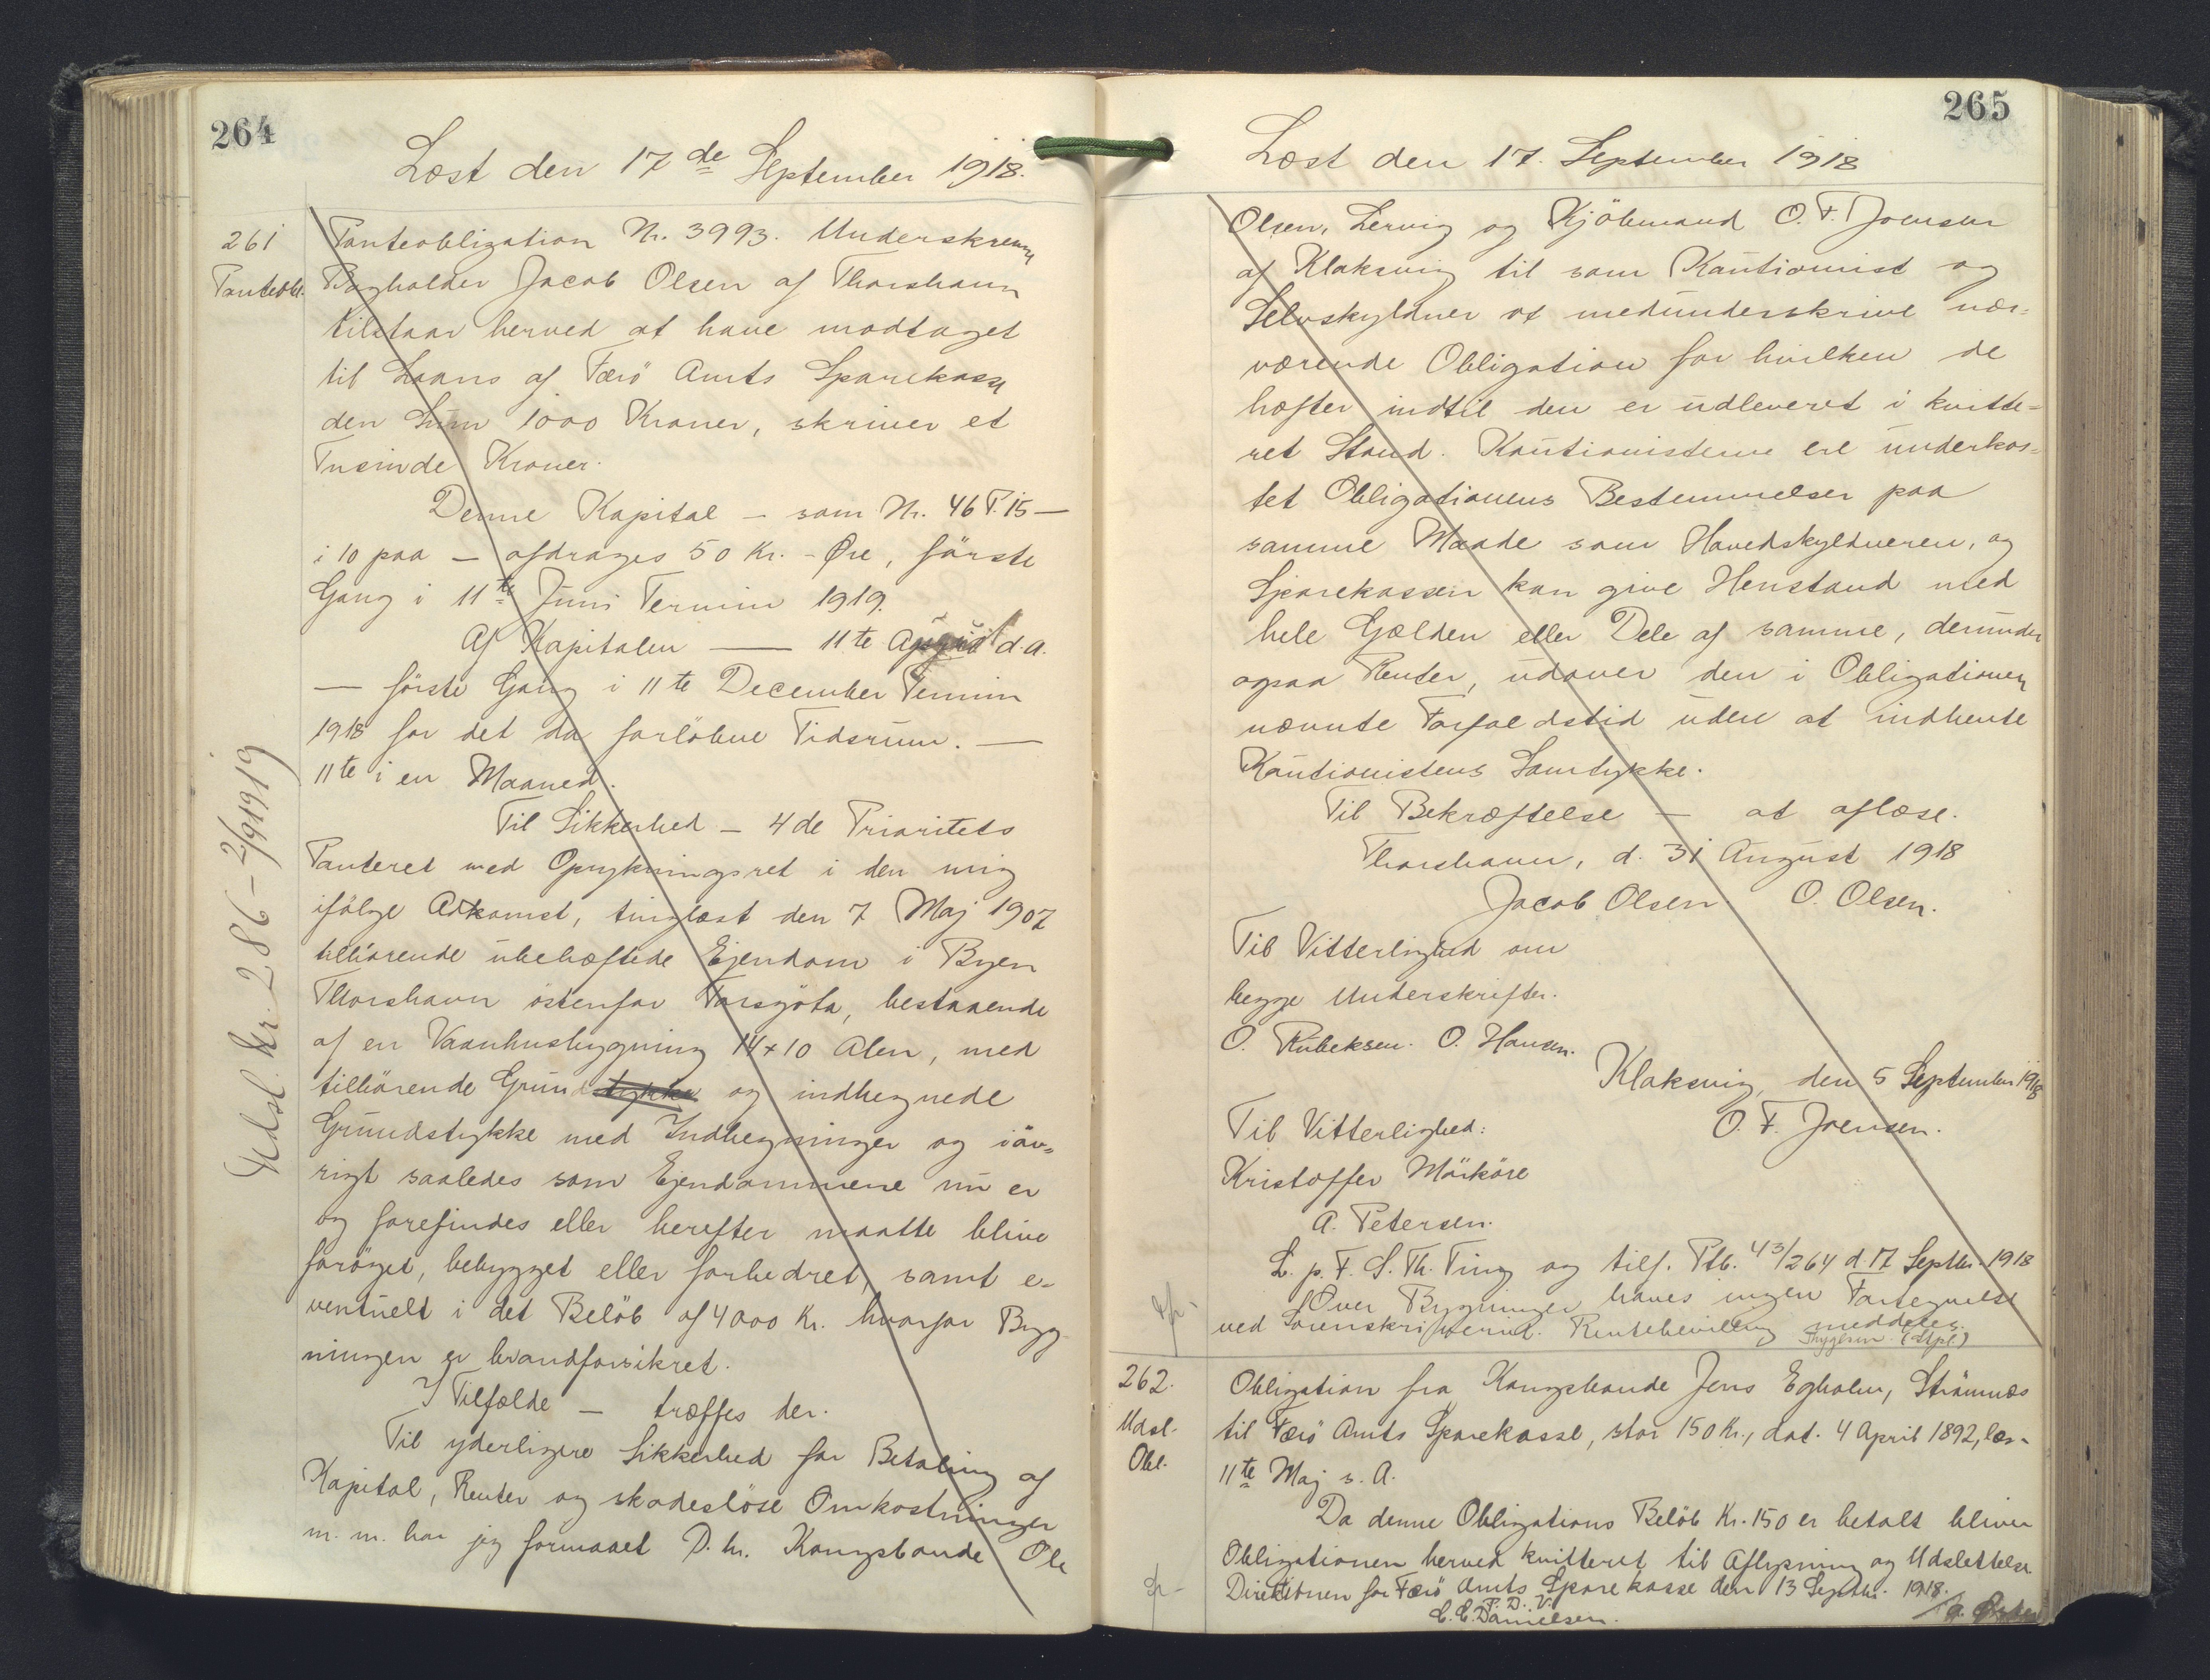 264
Læst den 17de September 1918.
261
Panteobl.
Panteobligation Nr. 3993. Underskrevne
Bogholder Jacob Olsen af Thorshavn
tilstaar herved at have modtaget
til Laans af Færö Amts Sparekasse
den Sum 1000 Kroner, skriver et
Tusinde Kroner.
Denne Kapital – som Nr. 46 P. 15 –
i 10 paa – afdrages 50 Kr. - Øre, förste
Gang i 11te Juni Termin 1919.
Af Kapitalen — 11te August d.A.
— förste Gang i 11te December Termin
1918 for det da forlöbne Tidsrum. —
11te i en Maaned.
Til Sikkerhed – 4de Prioritets
Panteret med Oprykningsret i den mig
ifölge Adkomst, tinglæst den 7 Maj 1907
tilhörende ubehæftede Ejendom i Byen
Thorshavn östenfor Torsgöta, bestaaende
af en Vaanhusbygning 14 x 10 Alen, med
tilhörende Grundstykke og indhegnede
Grundstykke med Indhegninger og iöv=
rigt saaledes som Ejendommene nu er
og forefindes eller herefter maatte blive
foröget, bebygget eller forbedret, samt e-
ventuelt i det Belöb af 4000 Kr. hvorfor Byg-
ningen er brandforsikret.
I Tilfælde – træffes der.
Til yderligere Sikkerhed for Betaling af
Kapital, Renter og skadeslöse Omkostninger
m.m. har jeg formaaet D.hr. Kongsbonde Ole
Udsl. Nr. 286 - 2/9 1919
265
Læst den 17. September 1918
Olsen, Lervig og Kjöbmand O. F. Joensen
af Klaksvig til som Kautionist og
Selvskyldner at medunderskrive nær=
værende Obligation for hvilken de
hæfter indtil den er udleveret i kvitte=
ret Stand. Kautionisterne ere underkas=
tet Obligationens Bestemmelser paa
samme Maade som Hovedskyldneren, og
Sparekassen kan give Henstand med
hele Gjælden eller Dele af samme, derunder
ogsaa Renter, udover den i Obligationen
nævnte Forfaldstid uden at indhente
Kautionistens Samtykke.
Til Bekræftelse – at aflæse.
Thorshavn, d. 31 August 1918
Jacob Olsen. O. Olsen.
Til Vitterlighed om
begge Underskrifter.
O. Rubeksen. O. Hansen.
Klaksvig, den 5 September 1918
O. F. Joensen.
Til Vitterlighed:
Kristoffer Mörköre
A. Petersen.
L. p. F. S. Th. Ting og tilf. Ptb. 43/264 d 17 Septbr. 1918
Over Bygninger haves ingen Fortegnelse
ved Sorenskriveriet. Rentebevilling meddeles.
Thygesen (Stpl)
262.
Udsl.
Obl.
Obligation fra Kongsbonde Jens Egholm, Strömnæs
til Færö Amts Sparekasse, stor 150 Kr., dat. 4 April 1892, læs-
11te Maj s. A.
Da denne Obligations Belöb Kr. 150 er betalt bliver
Obligationen herved kvitteret til Aflysning og Udslettelse
Direktionen for Færö Amts Sparekasse den 13 Septbr. 1918.
P. D. V.
C. C. Danielsen.